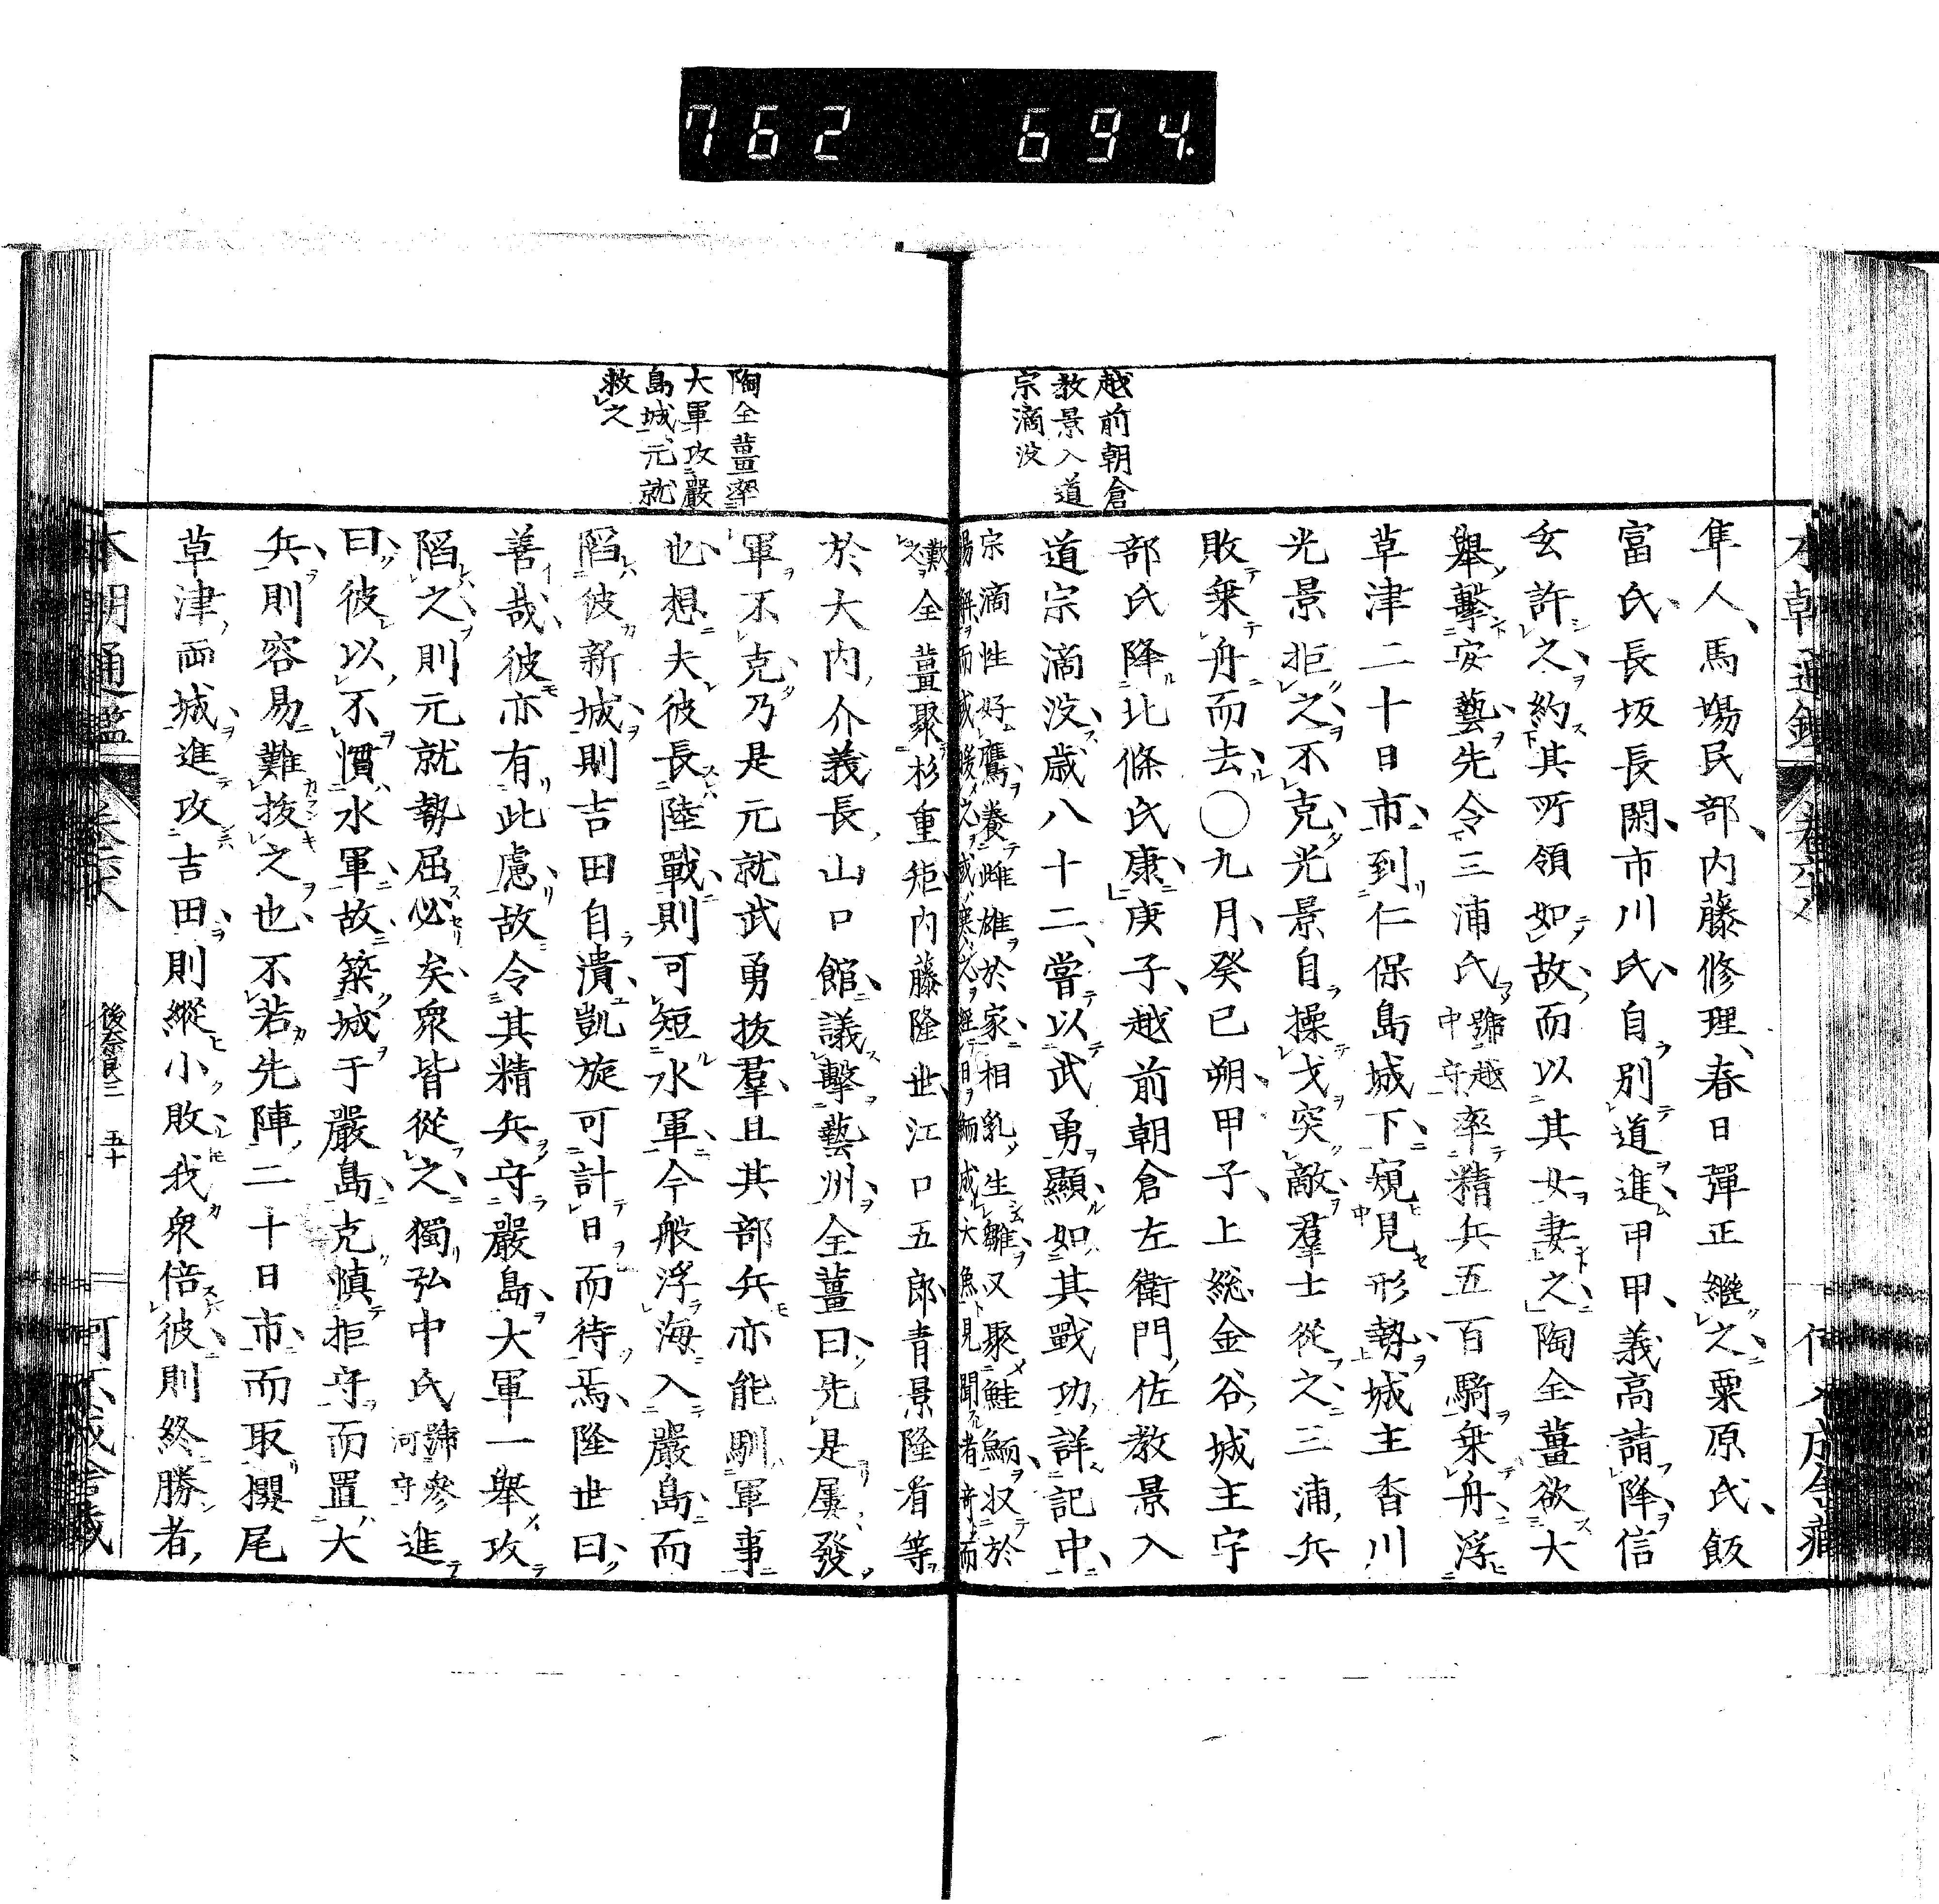 762 694.
越前朝倉
教景入道
宗滴没
隼人、馬場民部、内藤修理、春日彈正繼之、粟原氏、飯
富氏、長坂長閑、市川氏、自別道進甲甲、義高請降、信
玄許之、約其所領如故、而以其女妻之、陶全薑欲大
舉擊安藝、先令三浦氏號越中守率精兵五百騎乗舟浮
草津二十日市、到仁保島城下、窺見形勢、城主香川
光景拒之、不克、光景自操戈突敵、羣士從之、三浦兵
敗乗舟而去、〇九月、癸巳朔、甲子、上総金谷城主宇
部氏降北條氏康、庚子、越前朝倉左衛門佐教景入
道宗滴没、歳八十二、嘗以武勇顯、如其戰功、詳記中、
宗滴性好鷹養雌雄於家、相乳生雛、又聚鮭鮞收於
陶全薑率
大軍攻嚴
島城、元就
救之
歎之 全薑聚杉重矩内藤隆世、江口五郎、青景隆着等、
於大内介義長山口館、議擊藝州、全薑曰、先是屢發
軍不克、乃是元就武勇抜羣、且其部兵亦能馴軍事
也、想夫彼長陸戰、則可短水軍、今般浮海入嚴島、而
陷彼新城、則吉田自潰、凱旋可計日而待焉、隆世曰、
善哉、彼亦有此慮、故令其精兵守嚴島、大軍一舉攻
陷之、則元就勢屈必矣、衆皆從之、獨弘中氏號參河守進
曰、彼以不慣水軍、故築城于嚴島、克慎拒守、而置大
兵、則容易難抜之也、不若先陣二十日市、而取櫻尾
草津両城、進攻吉田、則縱小敗、我衆倍彼、則終勝者、
本朝通鑑
後奈良三 五十